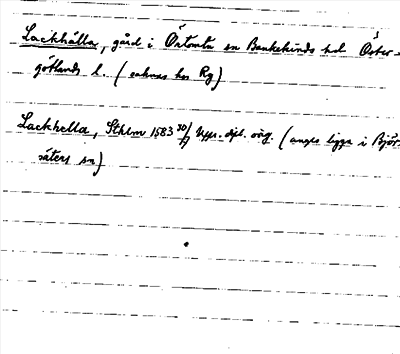 Lackhälla, gård i Örtomta sn Bankekinds hd Öster-
götlands l. (saknas hos Rg)
Lackhella, Sthlm 1583 30/9 Upps. dipl. orig. (anges ligga i Björ
säters sn)